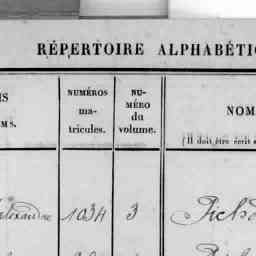 RÉPERTOIRE ALPHABÉTI
NUMÉROS
ma-
tricules.
NU-
MÉRO
du
volume.
NOM
MS.
(Il doit être écrit
1034 3